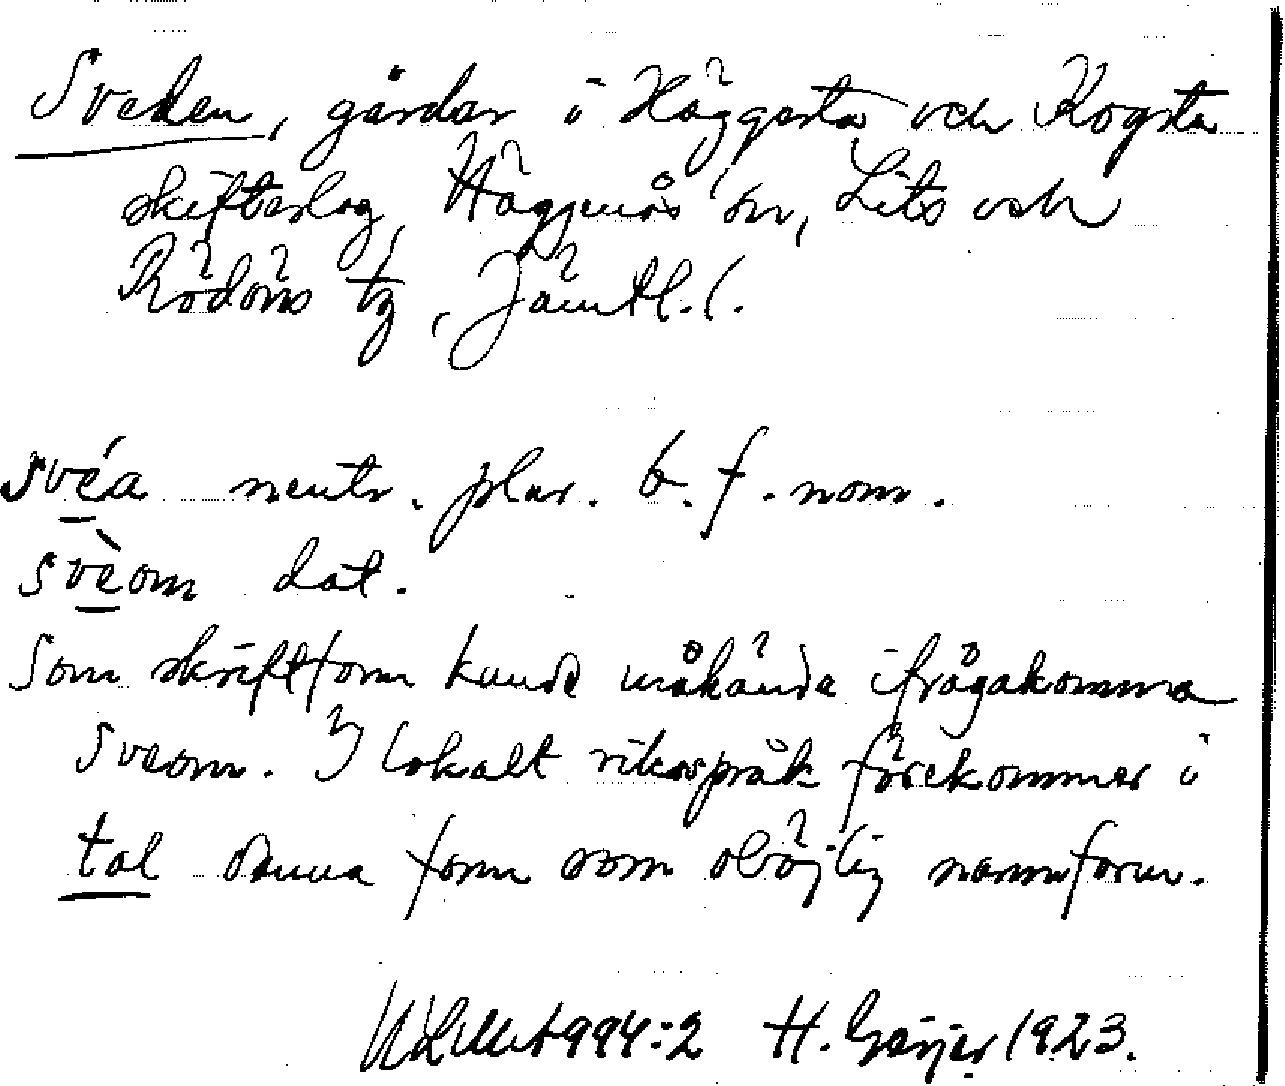 Sveden, gårdar i Häggesta och Kogsta
skifteslag, Häggenås sn, Lits och
Rödöns tg, Jämtl. l.
svéa neutr. plur. b. f. nom.
svèom dat.
Som skriftform kunde måhända ifrågakomma
Sveom. I lokalt riksspråk förekommer i
tal denna form som oböjlig namnform.
1994:2 H. Geijer 1923.